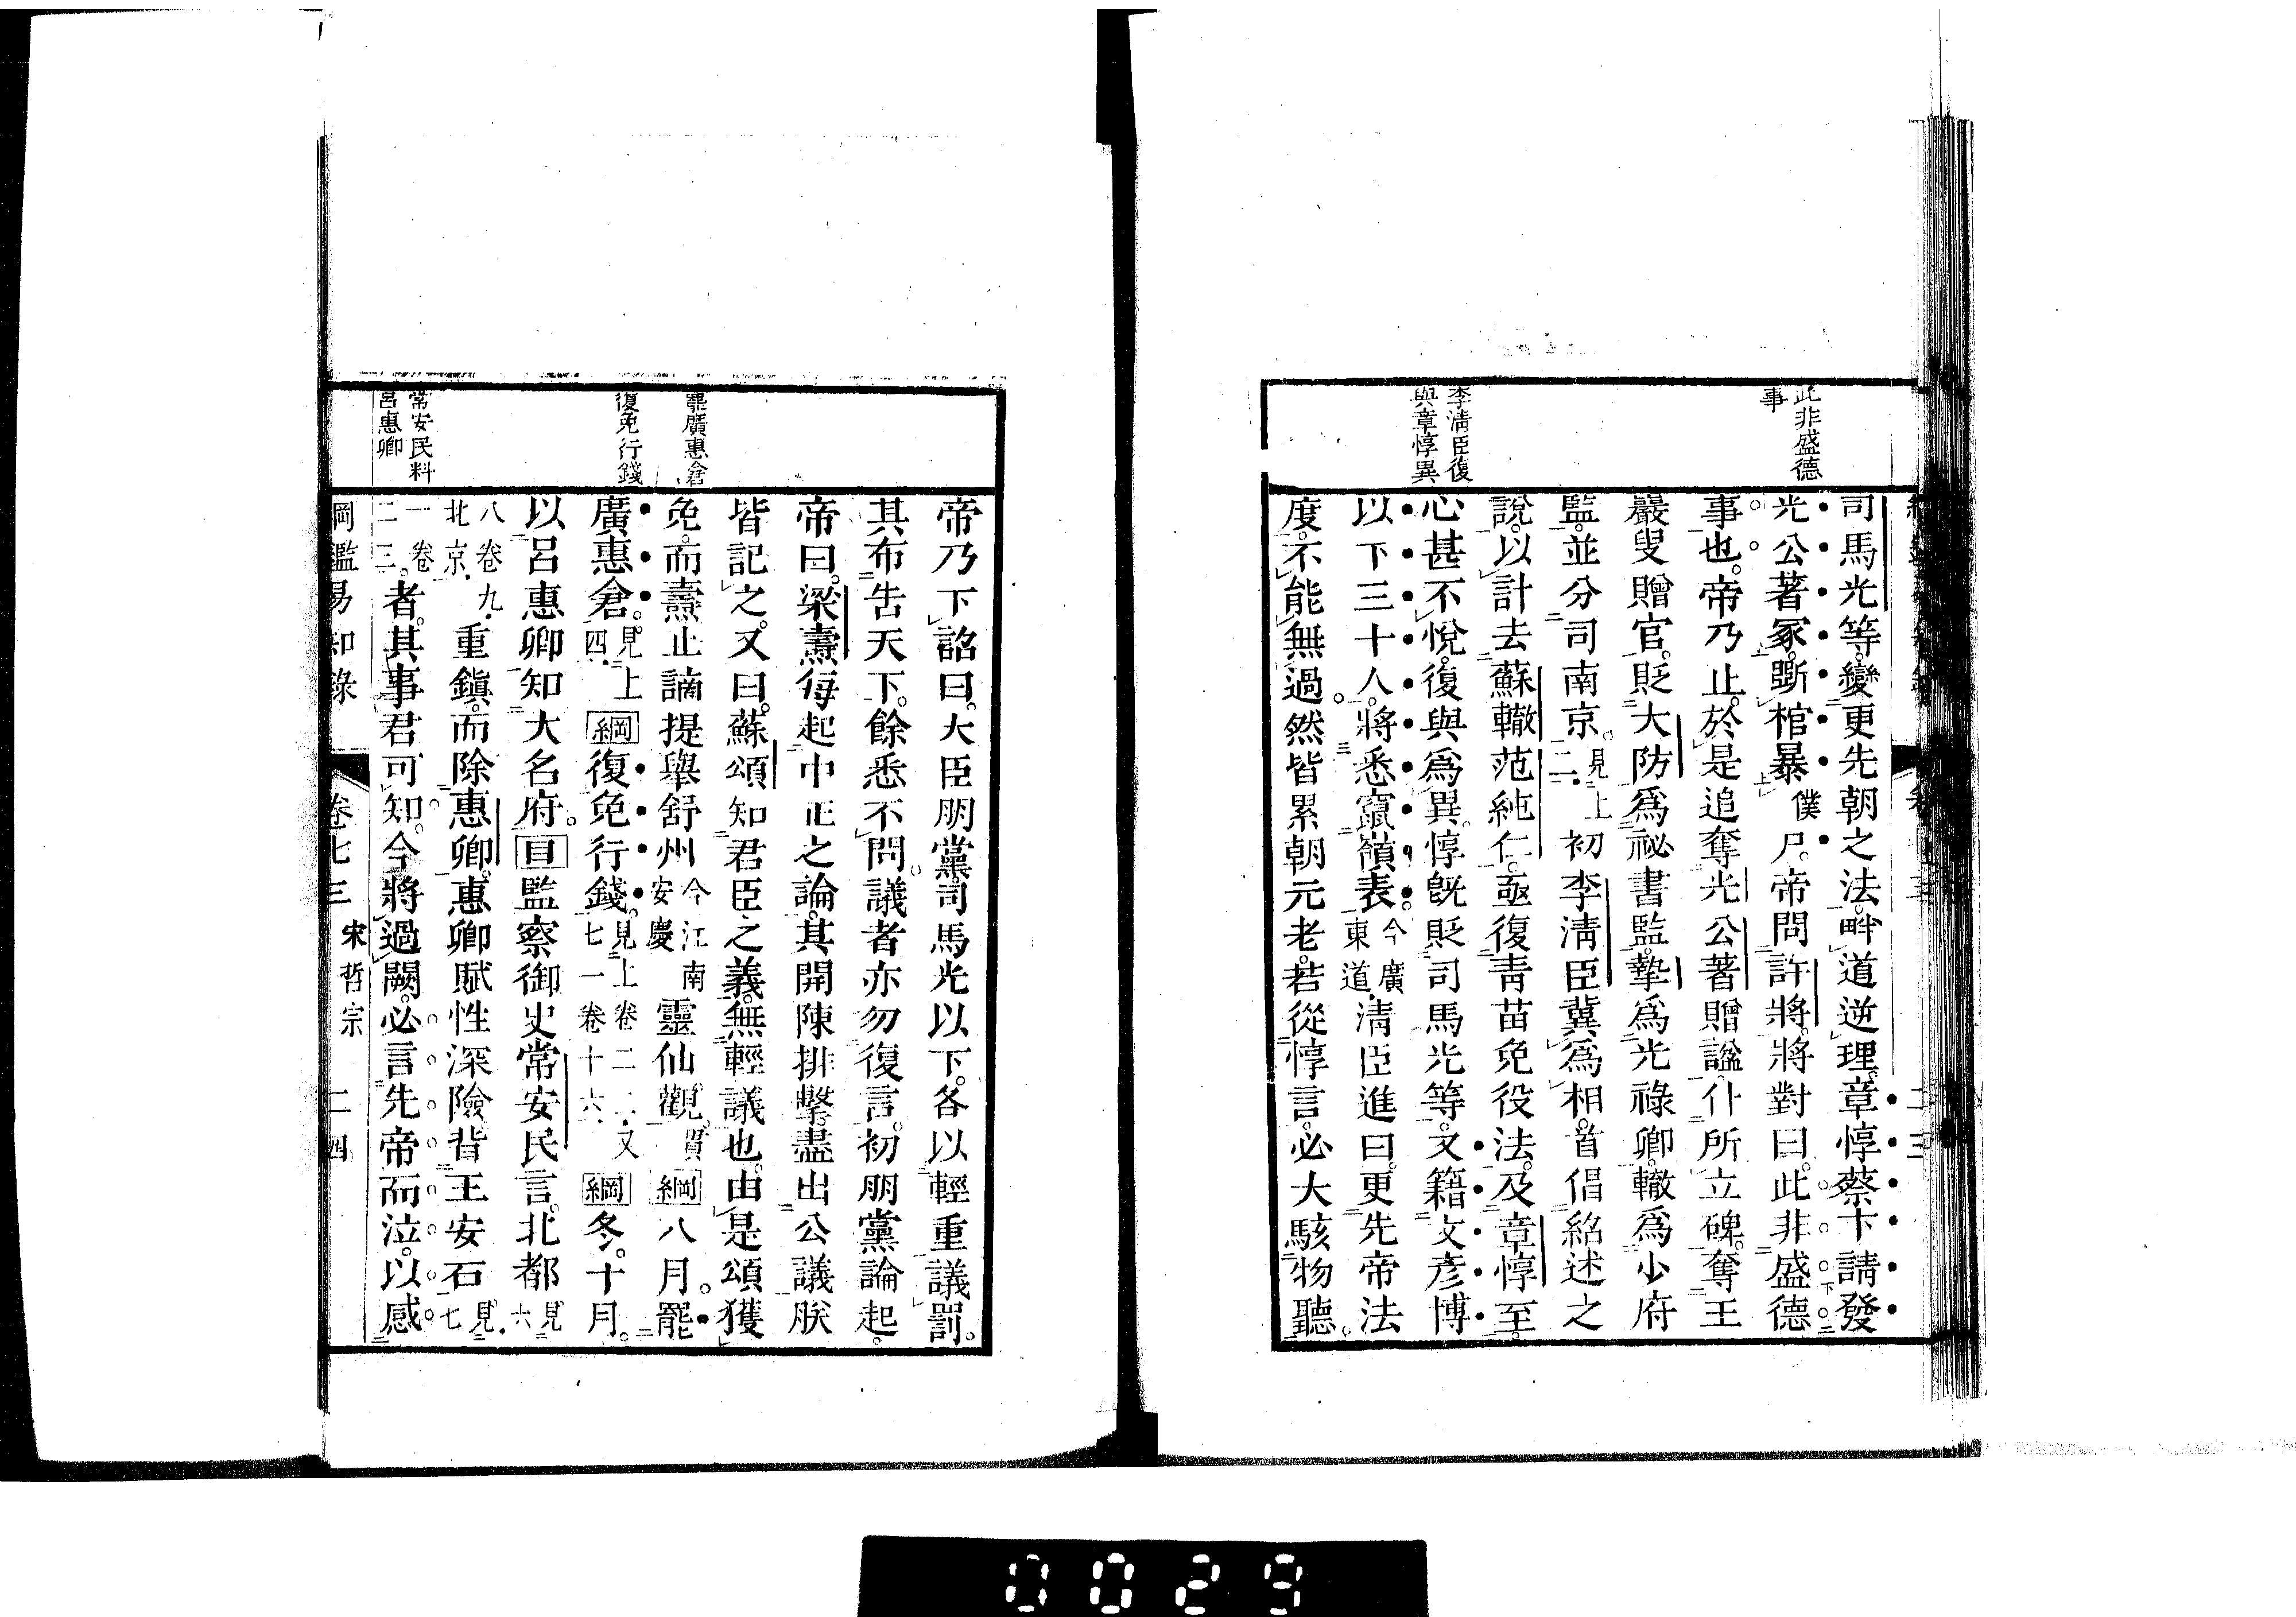 此非盛德
事
李淸臣復
與章惇異
司馬光等。變更先朝之法。畔道逆理。章惇蔡卞請發
光公著冢。斲棺暴僕尸。帝問許將。將對曰。此非盛德
事也。帝乃止。於是追奪光公著贈諡。仆所立碑。奪王
巖叟贈官。貶大防爲祕書監。摯爲光祿卿。轍爲少府
監。並分司南京。見上二二初李淸臣冀爲相。首倡紹述之
說。以計去蘇轍范純仁。亟復靑苗免役法。及章惇至。
心甚不悅。復與爲異。惇旣貶司馬光等。又籍文彥博
以下三十人。將悉竄嶺表。今廣東道淸臣進曰。更先帝法
度。不能無過。然皆累朝元老。若從惇言。必大駭物聽。
罷廣惠倉
復免行錢
常安民料
呂惠卿
帝乃下詔曰。大臣朋黨。司馬光以下。各以輕重議罰。
其布吿天下。餘悉不問。議者亦勿復言。初朋黨論起。
帝曰。梁燾每起中正之論。其開陳排擊。盡出公議。朕
皆記之。又曰。蘇頌知君臣之義。無輕議也。由是頌獲
免。而燾止謫提舉舒州今江南安慶靈仙觀。見貫綱八月。罷
廣惠倉。見上四綱復免行錢。見上卷二二又七一卷十六綱冬。十月。
以呂惠卿知大名府。目監察御史常安民言。北都見六
八卷九北京重鎭。而除惠卿。惠卿賦性深險。背王安石見七
一卷二三者。其事君可知。今將過闕。必言先帝而泣。以感
綱鑑易知錄 卷七三 宋哲宗 二四
0029